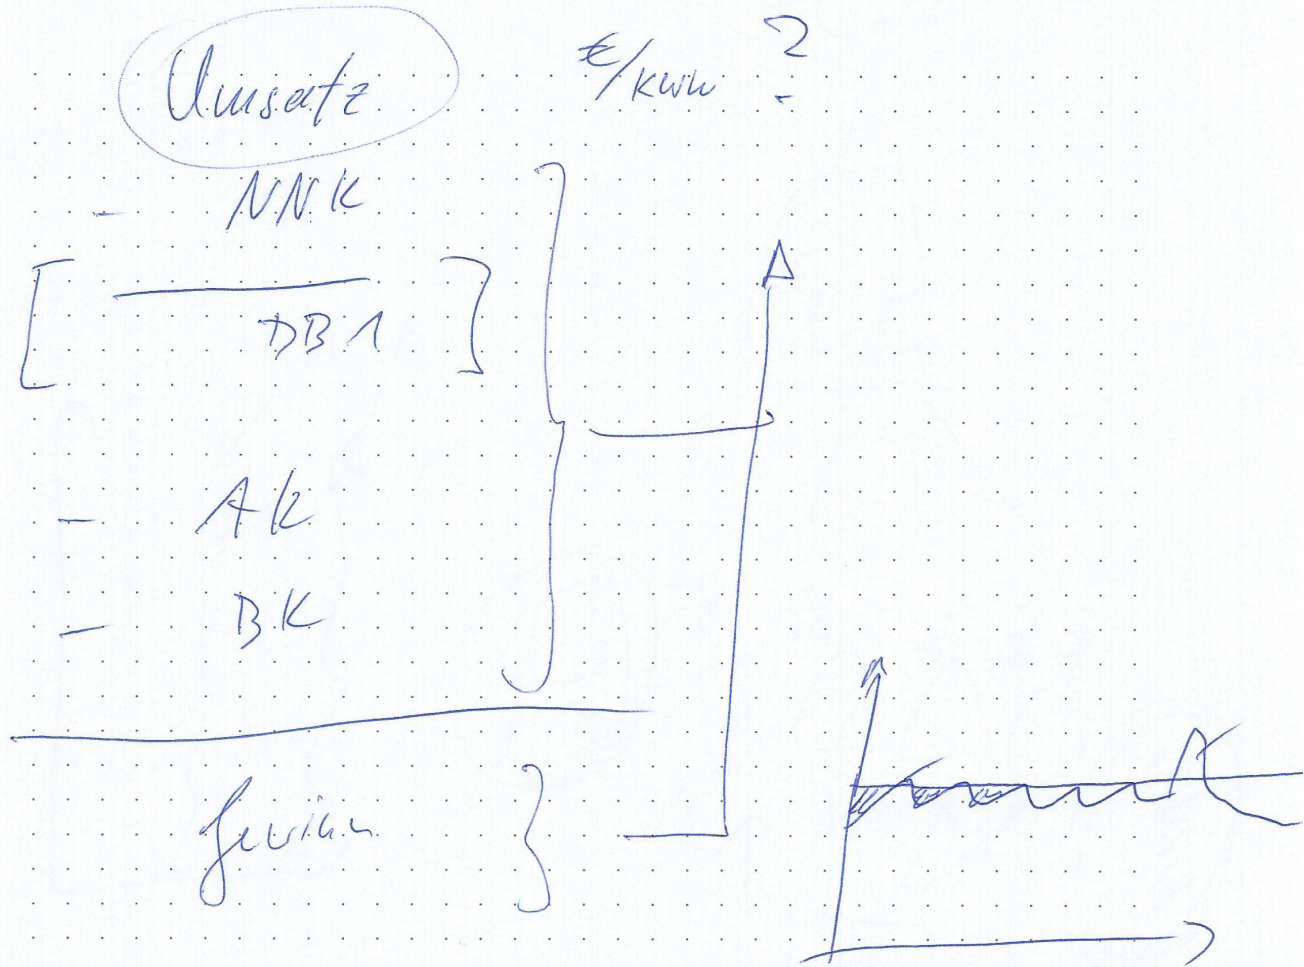 Umsatz €/kWh ?
- NNK
[ DB1 ]
- AK
- BK
Gewinn